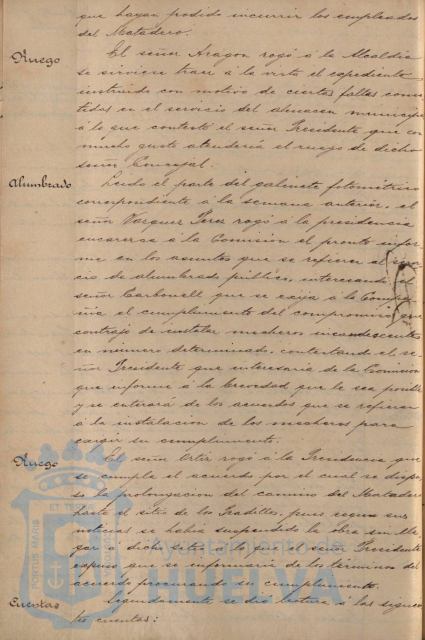 que hayan podido incurrir los empleados
del Matadero.
Ruego
El señor Aragon rogó á la Alcaldia
se sirviese traer á la vista el expediente
instruido con motivo de ciertas faltas come
tidas en el servicio del almacen municipal
á lo que contestó el señor Presidente que con
mucho gusto atenderia el ruego de dicho
señor Concejal.
Alumbrado
Leido el parte del gabinete fotométrico
correspondiente á la semana anterior, el
señor Vazquez rogó á la presidencia
encarezca á la Comisión el pronto infor-
me en los asuntos que se refieren al
cio de alumbrado público, interesando el
señor Carbonell que se exija á la Compa
ñia el cumplimiento del compromiso que
contrajo de instalar mecheros incandescentes
en número determinado, contestando el se-
ñor Presidente que interesaria de la Comision
que informe á la brevedad que le sea posible
y se enterará de los acuerdos que se refieren
á la instalacion de los mecheros para
exigir su cumplimiento.
Ruego
El señor Ortiz rogó á la Presidencia que
se cumpla el acuerdo por el cual se dispu
so la prolongacion del camino del Matadero
hasta el sitio de los Tradillos, pues segun sus
noticias se habia suspendido la obra sin lle
gar á dicho sitio, á lo que el señor Presidente
expuso que se informaria de los terminos del
acuerdo procurando su cumplimiento.
Cuentas
Seguidamente se dio lectura á las siguien
tes cuentas:
PORTUS MARIS
ET TERRÆ
Ayuntamiento de
HUELVA